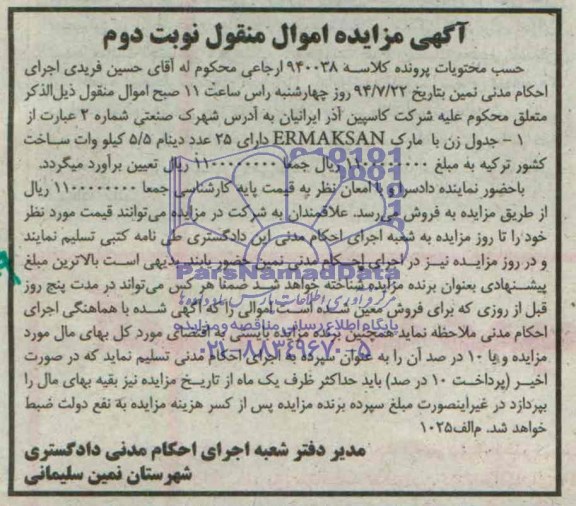 آگهی مزایده اموال منقول نوبت دوم
حسب محتویات پرونده کلاسه ۹۴۰۰۳۸ ارجاعی محکوم له آقای حسین فریدی اجرای
احکام مدنی نمین بتاریخ ۹۴/۷/۲۲ روز چهارشنبه راس ساعت ۱۱ صبح اموال منقول ذیل‌الذکر
متعلق محکوم علیه شرکت کاسپین آذر ایرانیان به آدرس شهرک صنعتی شماره ۲ عبارت از
۱ – جدول زن با مارک ERMAKSAN دارای ۲۵ عدد دینام ۵/۵ کیلو وات ساخت
کشور ترکیه به مبلغ ریال جمعا ۱۱۰۰۰۰۰۰۰۰ ریال تعیین برآورد میگردد.
باحضور نماینده دادسرا و با امعان نظر به قیمت پایه کارشناسی جمعا ۱۱۰۰۰۰۰۰۰۰ ریال
از طریق مزایده به فروش می‌رسد. علاقمندان به شرکت در مزایده می‌توانند قیمت مورد نظر
خود را تا روز مزایده به شعبه اجرای احکام مدنی این دادگستری طی نامه کتبی تسلیم نمایند
و در روز مزایده نیز در اجرای احکام مدنی نمین حضور یابند بدیهی است بالاترین مبلغ
پیشنهادی بعنوان برنده مزایده شناخته خواهد شد ضمنا هر کس می‌تواند در مدت پنج روز
قبل از روزی که برای فروش معین شده است اموالی را که آگهی شده با هماهنگی اجرای
احکام مدنی ملاحظه نماید همچنین برنده مزایده بایستی به اقتضای مورد کل بهای مال مورد
مزایده و یا ۱۰ در صد آن را به عنوان سپرده به اجرای احکام مدنی تسلیم نماید که در صورت
اخیر (پرداخت ۱۰ در صد) باید حداکثر ظرف یک ماه از تاریخ مزایده نیز بقیه بهای مال را
بپردازد در غیراینصورت مبلغ سپرده برنده مزایده پس از کسر هزینه مزایده به نفع دولت ضبط
خواهد شد. م‌الف۱۰۲۵
مدیر دفتر شعبه اجرای احکام مدنی دادگستری
شهرستان نمین سلیمانی
ParsNamadData
پایگاه اطلاع رسانی مناقصه و مزایده
۰۲۱-۸۸۳۴۹۶۷۰-۵